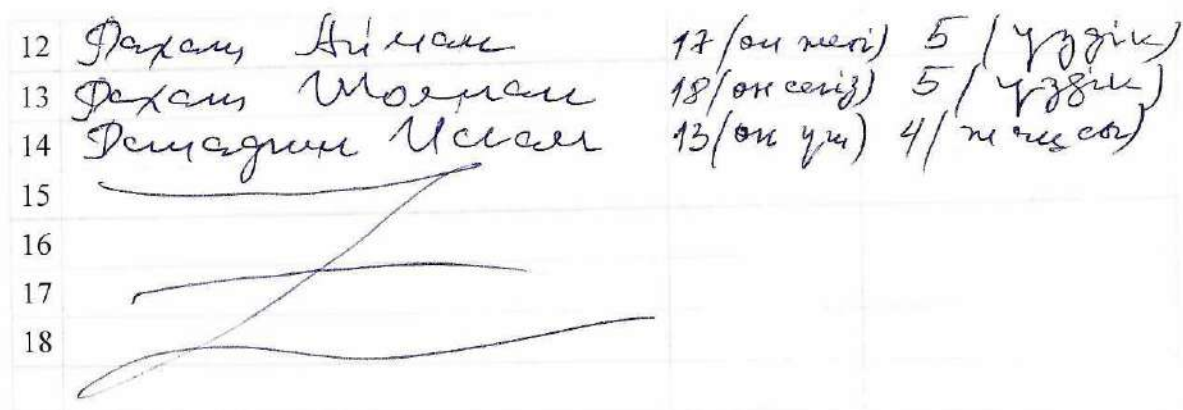 12 Рахат Айман 17(он жеті) 5 (үздік)
13 Рахат Шолпан 18(он сегіз) 5 (үздік)
14 Ислам 13(он үш) 4 (жақсы)
15
16
17
18